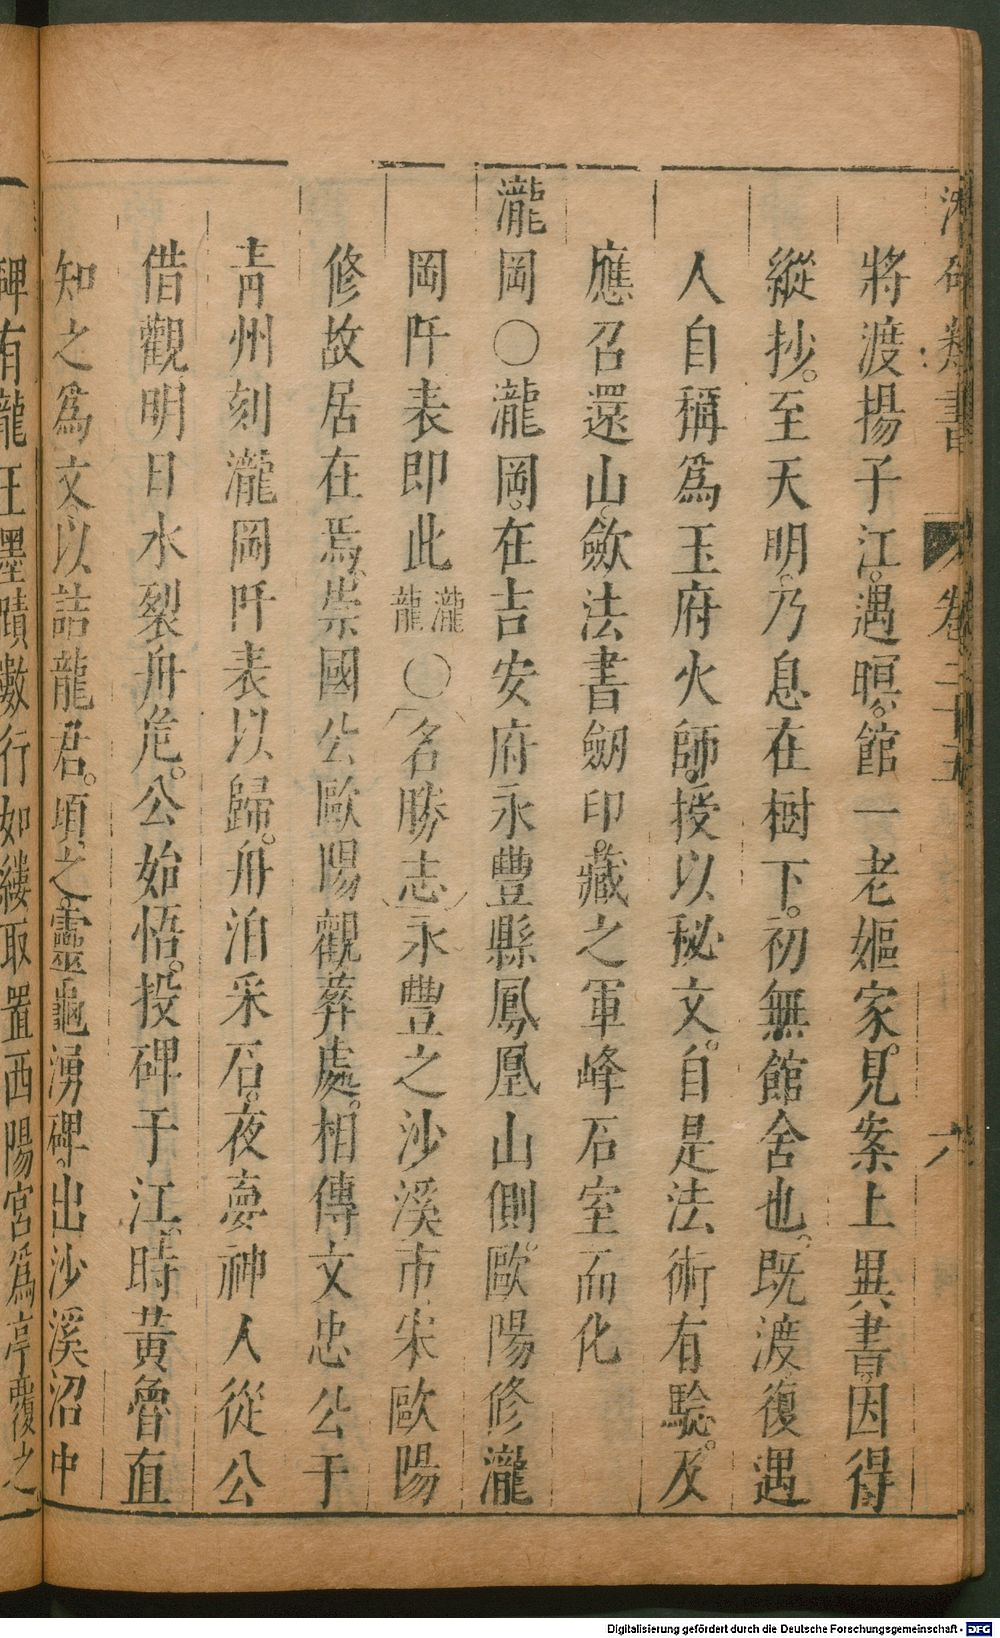 類書
卷二十五
六
將渡揚子江。遇暝。館一老嫗家。見案上異書。因得
縱抄。至天明。乃息在樹下。初無館舍也。既渡。復遇
人自稱爲玉府火師。授以秘文。自是法術有驗。及
應召還山。歛法書劒印。藏之軍峰石室而化
瀧岡〇瀧岡。在吉安府永豐縣鳳凰山側。歐陽修瀧
岡阡表即此瀧龍〇名勝志永豐之沙溪市宋歐陽
修故居在焉。崇國公歐陽觀葬處。相傳文忠公于
青州刻瀧岡阡表以歸。舟泊采石。夜夢神人從公
借觀明日水裂舟危。公始悟。投碑于江。時黃魯直
知之爲文以詰龍君。頃之靈龜湧碑。出沙溪沼中
碑有龍王墨蹟數行如縷取置西陽宮爲亭覆之
Digitalisierung gefördert durch die Deutsche Forschungsgemeinschaft - DFG